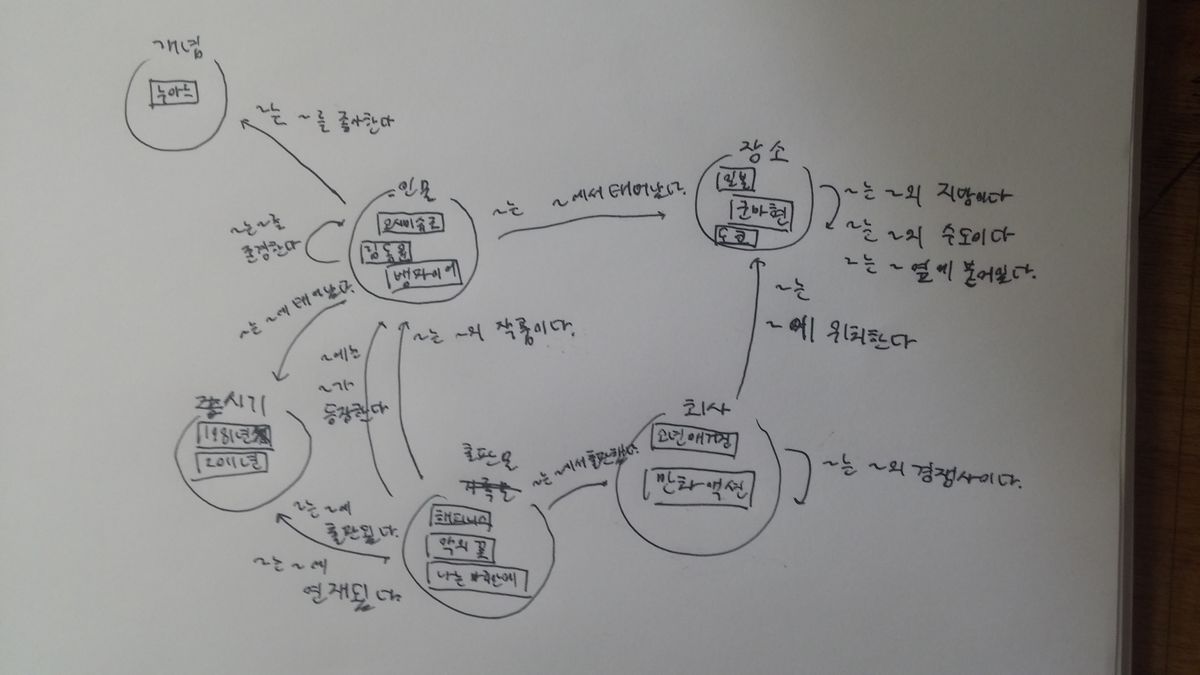 개념
누아느
~는 ~를 좋아한다
인물
오시미슈조
뱀파이어
~는 ~를
존경한다
~는 ~에서 태어났다.
장소
일본
군마현
도쿄
~는 ~의 지방이다
~는 ~의 수도이다
~는 ~ 옆에 붙어있다.
~는 ~에 태어났다.
~에는
~가
등장한다
~는 ~의 작품이다.
~는
~에 위치한다
시기
1981년
2011년
회사
소년매거진
만화액션
~는 ~의 경쟁사이다.
출판물
해피니스
악의 꽃
나는 마리안에
~는 ~에서 출판했다.
~는 ~에
출판됬다.
~는 ~에
연재됬다.